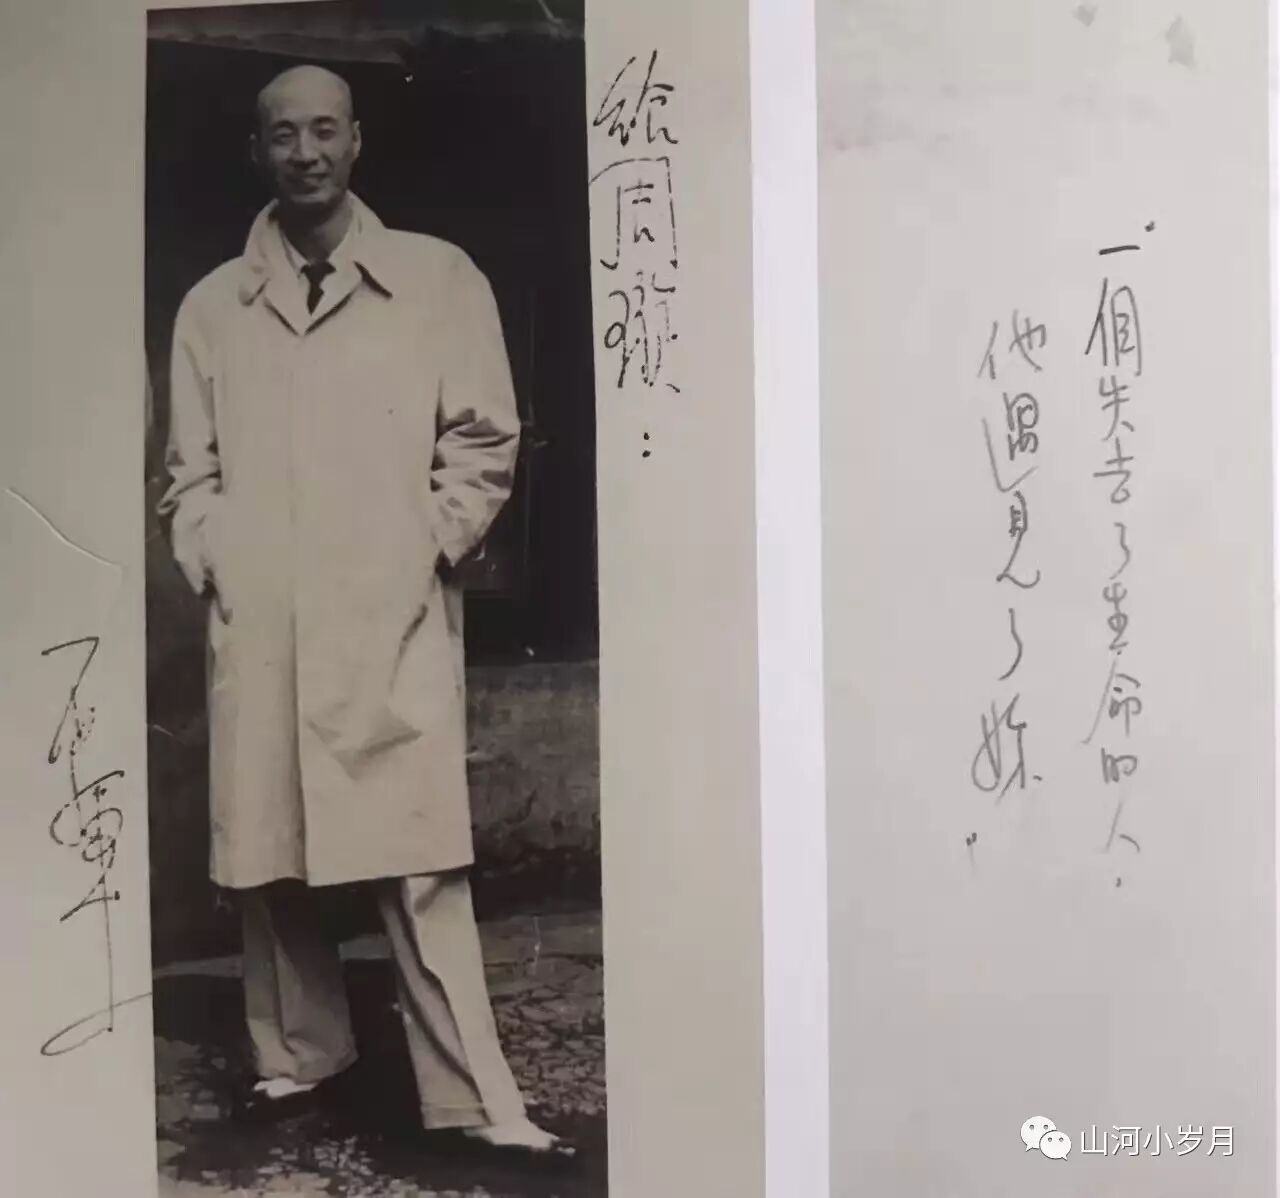 給周璇：
石揮
“一個失去了生命的人．
他遇見了妳”
山河小岁月